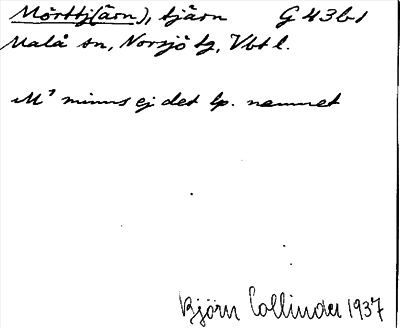 Mörttj(ärn), tjärn G 43b1
Malå sn, Norsjö tg, Vbtl.
M' minns ej det lp. namnet
Björn Collinder 1937